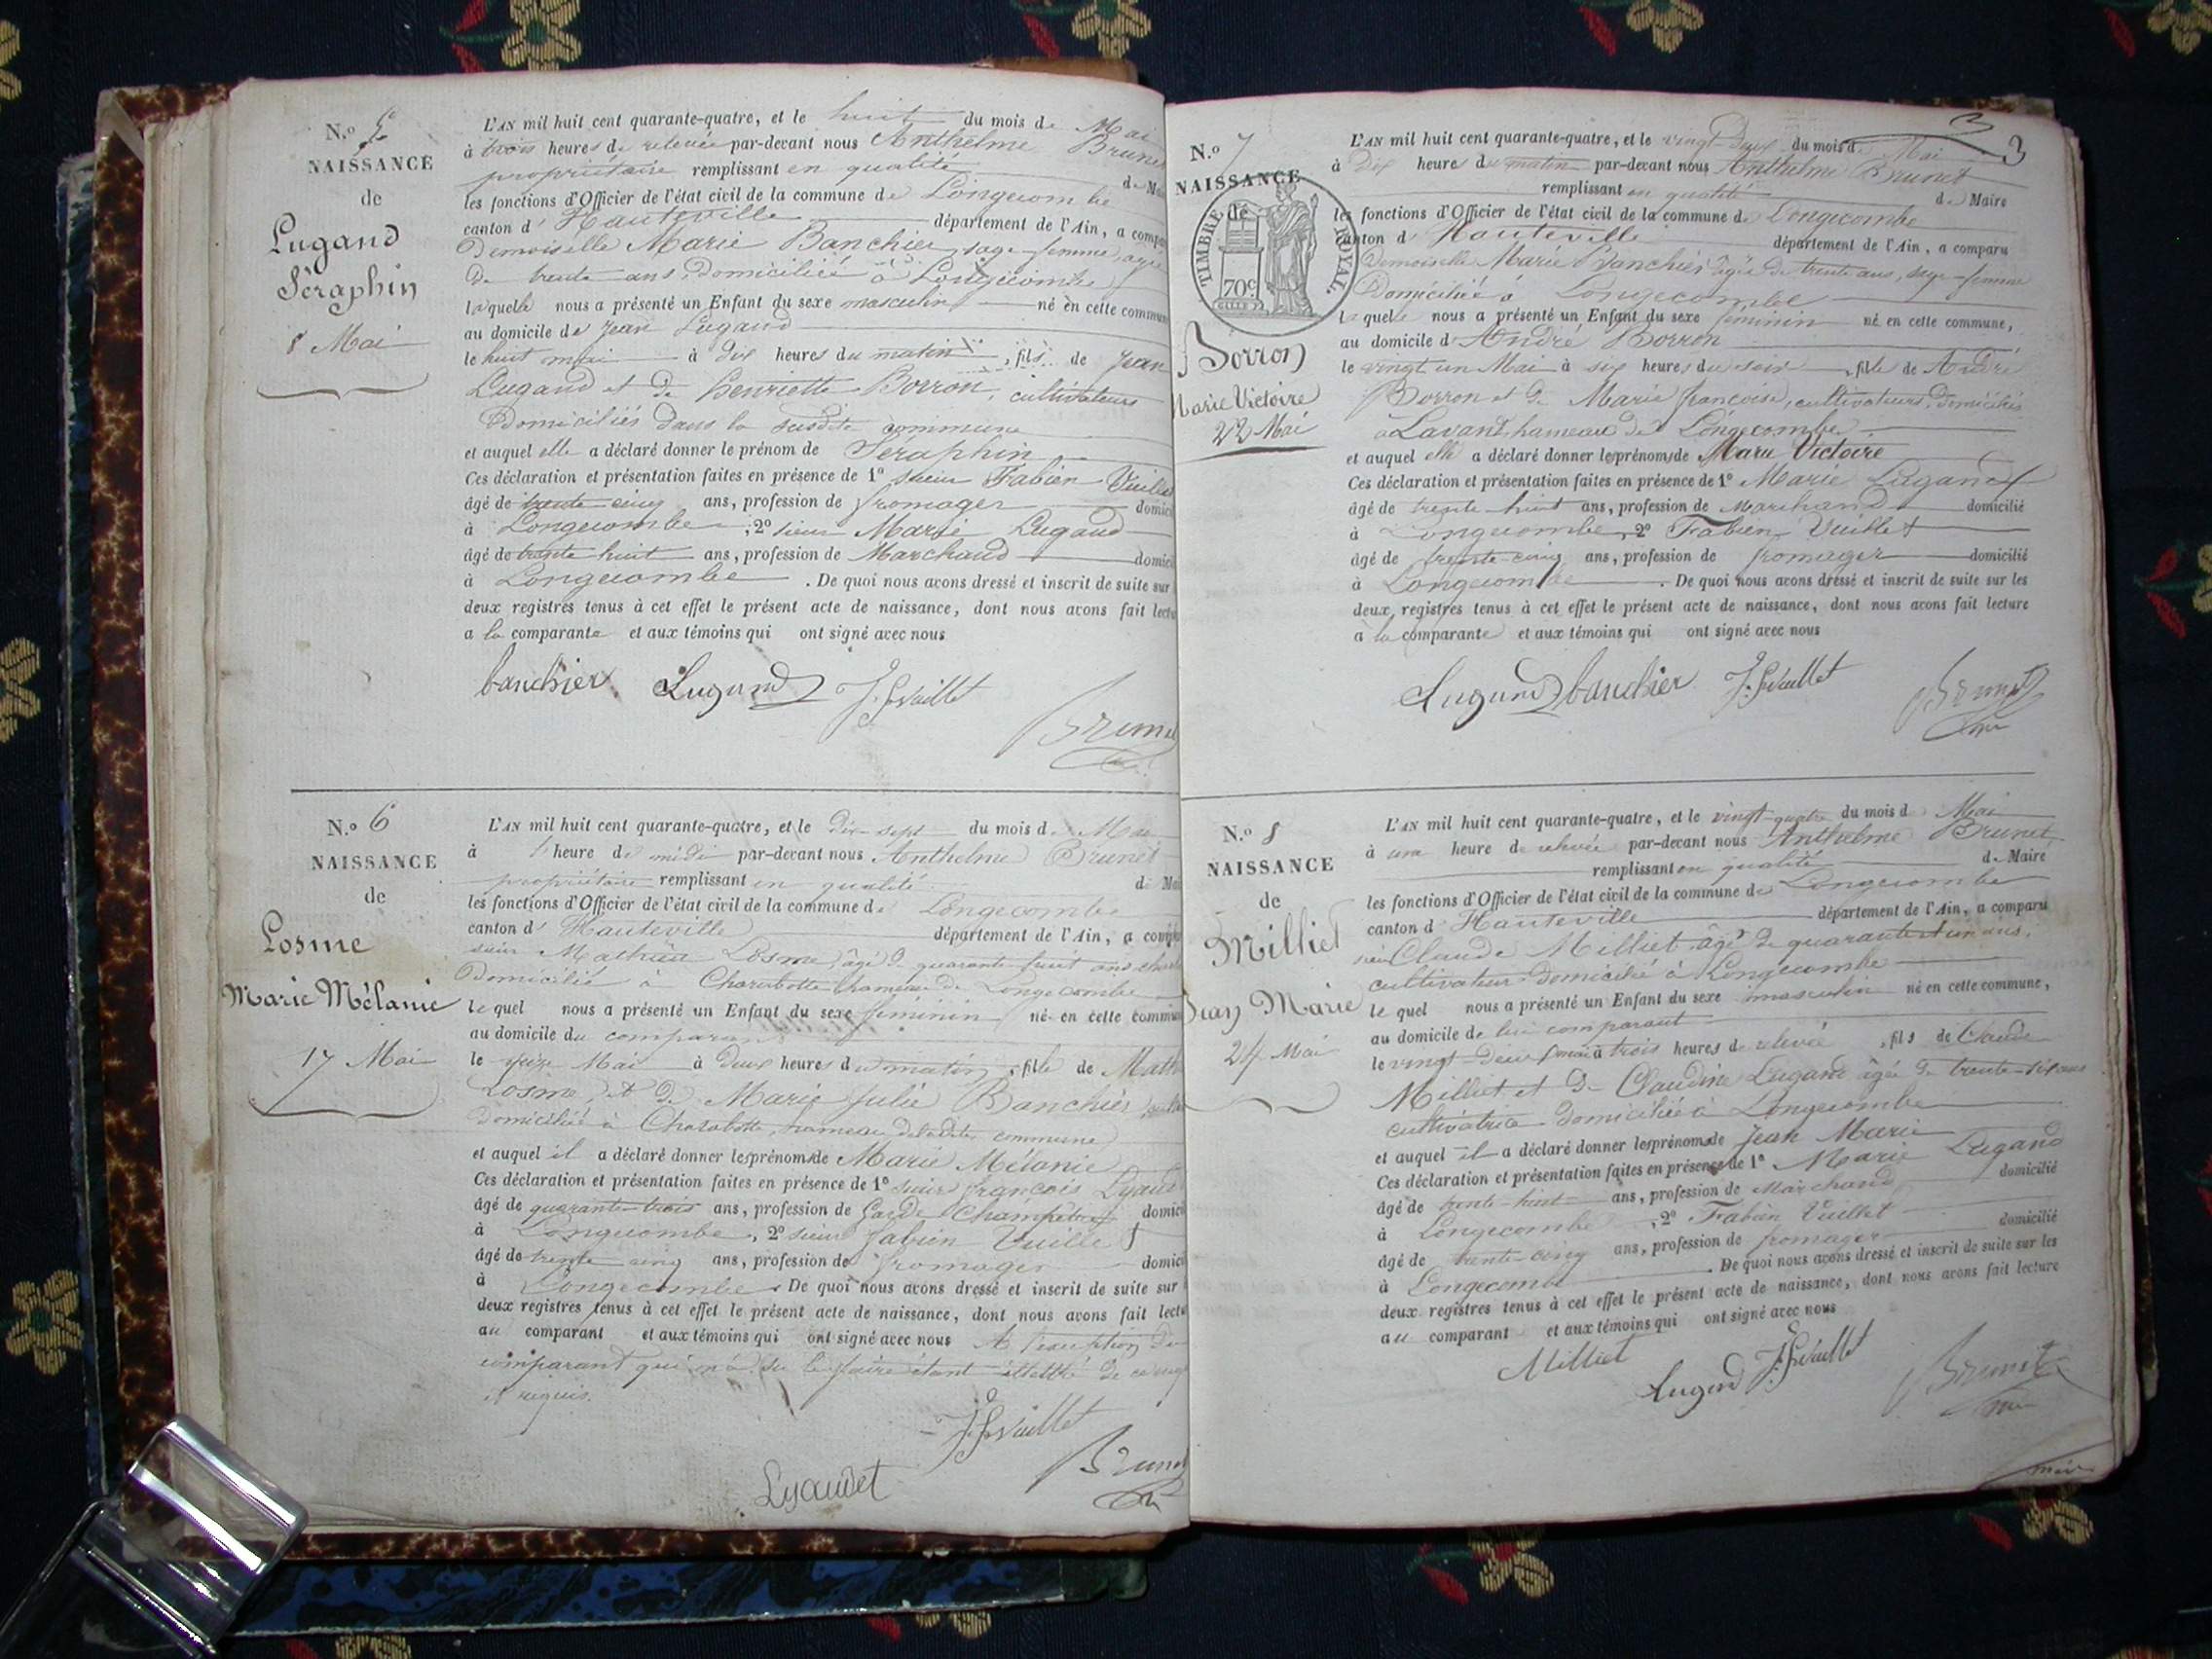 N.o
NAISSANCE
de
Lugand
Séraphin
8 Mai
L'AN mil huit cent quarante-quatre, et le huit du mois de Mai
à trois heures de relevée par-devant nous Anthelme Brunet
propriétaire remplissant en qualité de
les fonctions d'Officier de l'état civil de la commune de Longecombe
canton d' Hauteville département de l'Ain, a
Demoiselle Marie Banchier, sage-femme, agée
De trente ans Domiciliée à Longecombe
laquelle nous a présenté un Enfant du sexe masculin né en cette
au domicile de Jean Lugand
le huit mai à dix heures du matin, fils de Jean
Lugand et de Henriette Borron, cultivateurs
Domiciliés dans la susdite commune
et auquel elle a déclaré donner le prénom de Séraphin
Ces déclaration et présentation faites en présence de 1º sieur Fabien
âgé de trente cinq ans, profession de fromager
à Longecombe, 2º sieur Marie Lugand
âgé de trente huit ans, profession de Marchand
à Longecombe. De quoi nous avons dressé et inscrit de suite sur
deux registres tenus à cet effet le présent acte de naissance, dont nous avons fait
a la comparante et aux témoins qui ont signé avec nous
banchier Lugand Vuillet
N.o 6
NAISSANCE
de
Losme
Marie Mélanie
17 Mai
L'AN mil huit cent quarante-quatre, et le dix-sept du mois de Mai
à heure de midi par-devant nous Anthelme Brunet
propriétaire remplissant en qualité de
les fonctions d'Officier de l'état civil de la commune de Longecombe
canton d' Hauteville département de l'Ain, a
sieur Losme, âgé de quarante huit ans
Domicilié à Charabotte hameau de Longecombe
lequel nous a présenté un Enfant du sexe féminin né en cette
au domicile du comparant
le seize Mai à deux heures du matin, fille de
Losme, et de Marie Julie Banchier
domicilié à Charabotte, hameau de la dite commune
et auquel il a déclaré donner les prénoms de Marie Mélanie
Ces déclaration et présentation faites en présence de 1º sieur françois
âgé de quarante-trois ans, profession de Garde Champêtre
à Longecombe, 2º sieur fabien Vuillet
âgé de trente cinq ans, profession de fromager
à Longecombe. De quoi nous avons dressé et inscrit de suite sur
deux registres tenus à cet effet le présent acte de naissance, dont nous avons fait
au comparant et aux témoins qui ont signé avec nous A l'exception du
comparant qui n'a su le faire étant illettré de ce
requis.
Vuillet
Lyaudet
3
3
N.o 7
NAISSANCE
de
TIMBRE ROYAL.
70c
Borron
Marie Victoire
22 Mai
L'AN mil huit cent quarante-quatre, et le vingt-deux du mois de Mai
à Dix heures du matin par-devant nous Anthelme Brunet
remplissant en qualité de Maire
les fonctions d'Officier de l'état civil de la commune de Longecombe
canton d' Hauteville département de l'Ain, a comparu
Demoiselle Marie Banchier âgée de trente ans, sage-femme
Domiciliée à Longecombe
laquelle nous a présenté un Enfant du sexe féminin né en cette commune,
au domicile d'André Borron
le vingt un Mai à six heures du soir, fille de André
Borron et de Marie françoise, cultivateurs, Domiciliés
à Lavant hameau de Longecombe
et auquel elle a déclaré donner les prénoms de Marie Victoire
Ces déclaration et présentation faites en présence de 1º Marie Lugand
âgé de trente-huit ans, profession de Marchand domicilié
à Longecombe, 2º Fabien Vuillet
âgé de trente-cinq ans, profession de fromager domicilié
à Longecombe. De quoi nous avons dressé et inscrit de suite sur les
deux registres tenus à cet effet le présent acte de naissance, dont nous avons fait lecture
a la comparante et aux témoins qui ont signé avec nous
Lugand banchier Vuillet Brunet
N.o 8
NAISSANCE
de
Milliet
Jean Marie
24 Mai
L'AN mil huit cent quarante-quatre, et le vingt-quatre du mois d Mai
à une heure de relevée par-devant nous Anthelme Brunet
remplissant en qualité de Maire
les fonctions d'Officier de l'état civil de la commune de Longecombe
canton d' Hauteville département de l'Ain, a comparu
Claude Milliet, âgé de quarante et un ans,
cultivateur domicilié à Longecombe
lequel nous a présenté un Enfant du sexe masculin né en cette commune,
au domicile de lui comparant
le vingt-deux mai à trois heures de relevée, fils de Claude
Milliet et de Claudine Lugand âgée de trente-six ans
cultivatrice domiciliée à Longecombe
et auquel il a déclaré donner les prénoms de Jean Marie
Ces déclaration et présentation faites en présence de 1º Marie Lugand
âgé de trente-huit ans, profession de Marchand domicilié
à Longecombe, 2º Fabien Vuillet
âgé de trente-cinq ans, profession de fromager domicilié
à Longecombe. De quoi nous avons dressé et inscrit de suite sur les
deux registres tenus à cet effet le présent acte de naissance, dont nous avons fait lecture
au comparant et aux témoins qui ont signé avec nous
Milliet Lugand Vuillet Brunet